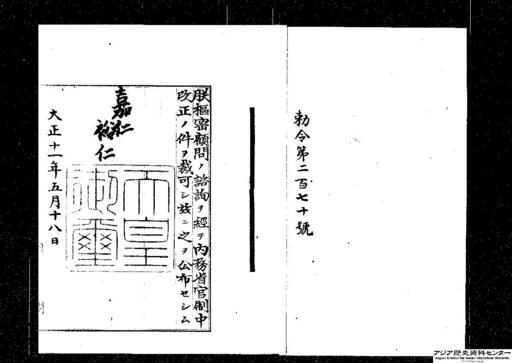 勅令第二百七十號
朕樞密顧問ノ諮詢ヲ經テ內務省官制中
改正ノ件ヲ裁可シ玆ニ之ヲ公布セシム
嘉仁
裕仁
天皇
御璽
大正十一年五月十八日
アジア歴史資料センター
Japan Center for Asian Historical Records